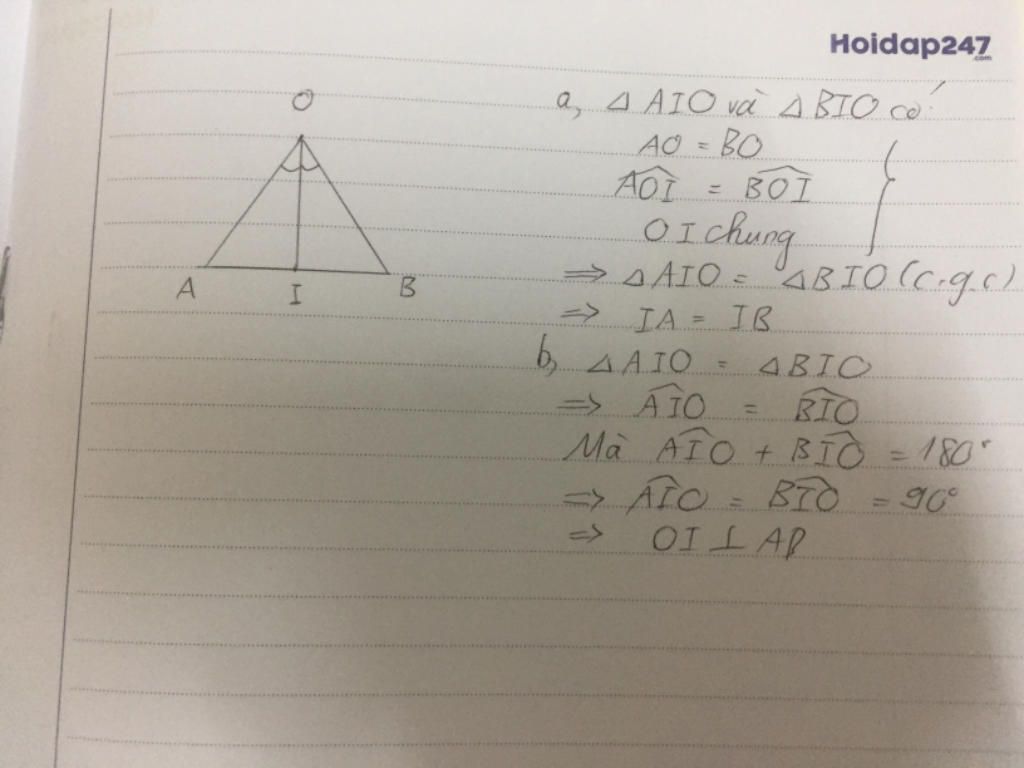 Hoidap247
.com
O
A
I
B
a, △AIO và △BIO có
AO = BO
\widehat{AOI} = \widehat{BOI}
OI chung
⇒ △AIO = △BIO (c.g.c)
⇒ IA = IB
b, △AIO = △BIO
⇒ \widehat{AIO} = \widehat{BIO}
Mà \widehat{AIO} + \widehat{BIO} = 180°
⇒ \widehat{AIO} = \widehat{BIO} = 90°
⇒ OI ⊥ AB